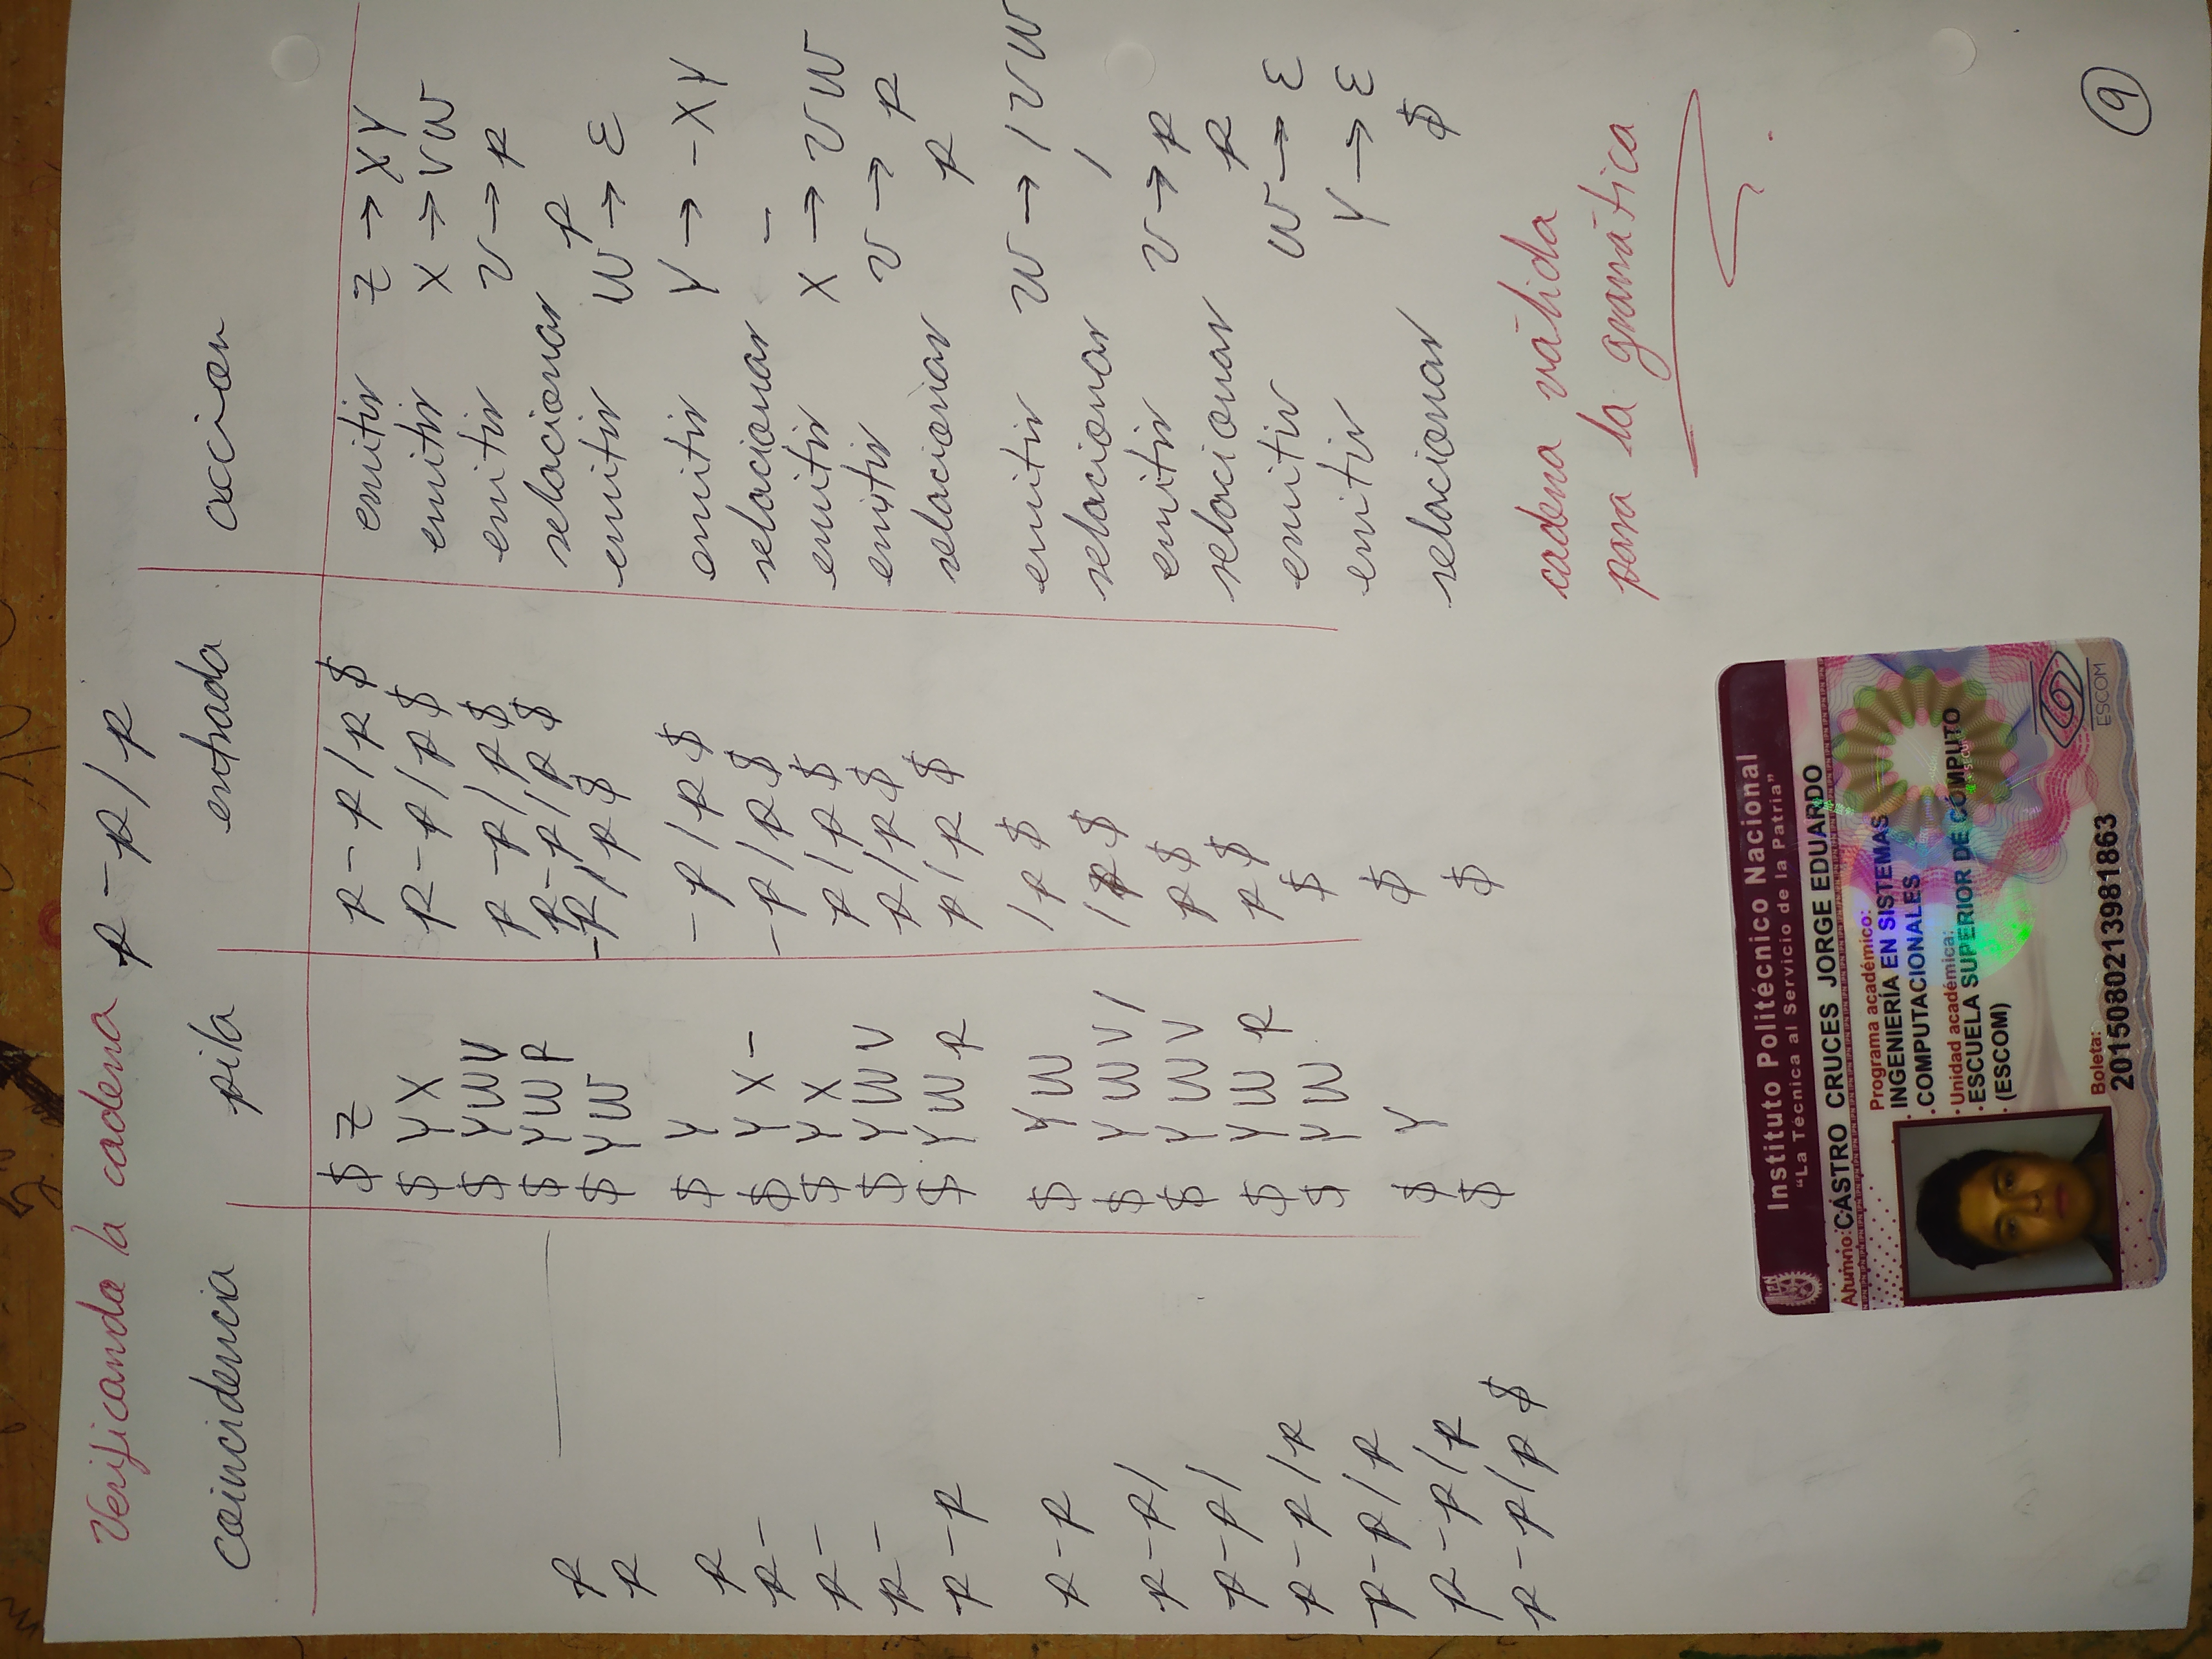 Verificando la cadena p - p / p
coincidencia pila entrada accion
$ Z p - p / p $ emitir Z → X Y
$ Y X p - p / p $ emitir X → V W
$ Y W V p - p / p $ emitir V → p
p $ Y W p p - p / p $ relacionar p
p $ Y W - p / p $ emitir W → ε
p $ Y - p / p $ emitir Y → - X Y
p - $ Y X - - p / p $ relacionar -
p - $ Y X p / p $ emitir X → V W
p - $ Y W V p / p $ emitir V → p
p - p $ Y W p p / p $ relacionar p
p - p $ Y W / p $ emitir W → / V W
p - p / $ Y W V / / p $ relacionar /
p - p / $ Y W V p $ emitir V → p
p - p / p $ Y W p p $ relacionar p
p - p / p $ Y W $ emitir W → ε
p - p / p $ Y $ emitir Y → ε
p - p / p $ $ $ relacionar $
cadena válida
para la gramática
IPN
Instituto Politécnico Nacional
"La Técnica al Servicio de la Patria"
Alumno: CASTRO CRUCES JORGE EDUARDO
Programa académico:
INGENIERÍA EN SISTEMAS
COMPUTACIONALES
Unidad académica:
ESCUELA SUPERIOR DE CÓMPUTO
(ESCOM)
Boleta:
2015080213981863
ESCOM
9